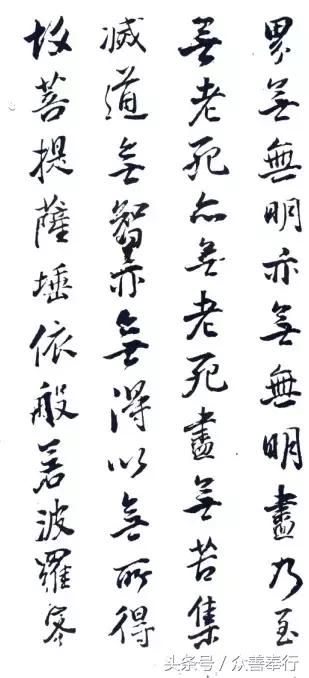 界無無明亦無無明盡乃至
無老死亦無老死盡無苦集
滅道無智亦無得以無所得
故菩提薩埵依般若波羅蜜
头条号／众善奉行